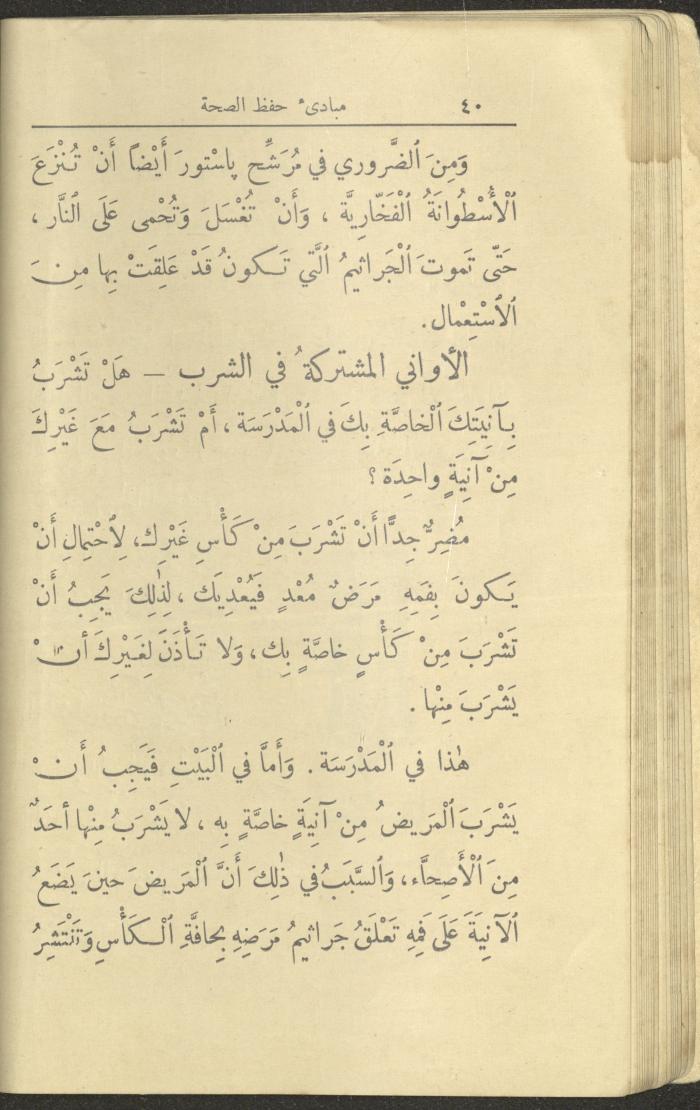 ٤٠ مبادىء حفظ الصحة
وَمِنَ ٱلضَّروري في مُرَشِّح پاسْتورَ أَيْضاً أَنْ تُنْزَعَ
ٱلْأُسْطُوانَةُ ٱلْفَخّارِيَّة ، وَأَنْ تُغْسَلَ وَتُحْمى عَلَى ٱلنَّار ،
حَتّى تَموتَ ٱلْجَراثيمُ ٱلَّتي تَكونُ قَدْ عَلِقَتْ بِها مِنَ
ٱلاُسْتِعْمال .
الأواني المشتركةُ في الشرب — هَلْ تَشْرَبُ
بِآنِيَتِكَ ٱلْخاصَّةِ بِكَ في ٱلْمَدْرَسَة ، أَمْ تَشْرَبُ مَعَ غَيْرِكَ
مِنْ آنِيَةٍ واحِدَة ؟
مُضِرٌّ جِدًّا أَنْ تَشْرَبَ مِنْ كَأْسِ غَيْرِك ، لِاُحْتِمالِ أَنْ
يَكونَ بِفَمِهِ مَرَضٌ مُعْدٍ فَيُعْدِيَك ، لِذٰلِكَ يَجِبُ أَنْ
تَشْرَبَ مِنْ كَأْسٍ خاصَّةٍ بِك ، وَلا تَأْذَنَ لِغَيْرِكَ أنْ
يَشْرَبَ مِنْها .
هٰذا في ٱلْمَدْرَسَة . وَأَمّا في ٱلْبَيْتِ فَيَجِبُ أَنْ
يَشْرَبَ ٱلْمَريضُ مِنْ آنِيَةٍ خاصَّةٍ بِه ، لا يَشْرَبُ مِنْها أحَدٌ
مِنَ ٱلْأَصِحَّاء ، وَٱلسَّبَبُ في ذٰلِكَ أَنَّ ٱلْمَريضَ حينَ يَضَعُ
ٱلآنِيَةَ عَلَى فَمِهِ تَعْلَقُ جَراثيمُ مَرَضِهِ بِحافَّةِ ٱلْكَأْسِ وَتَنْتَشِرُ